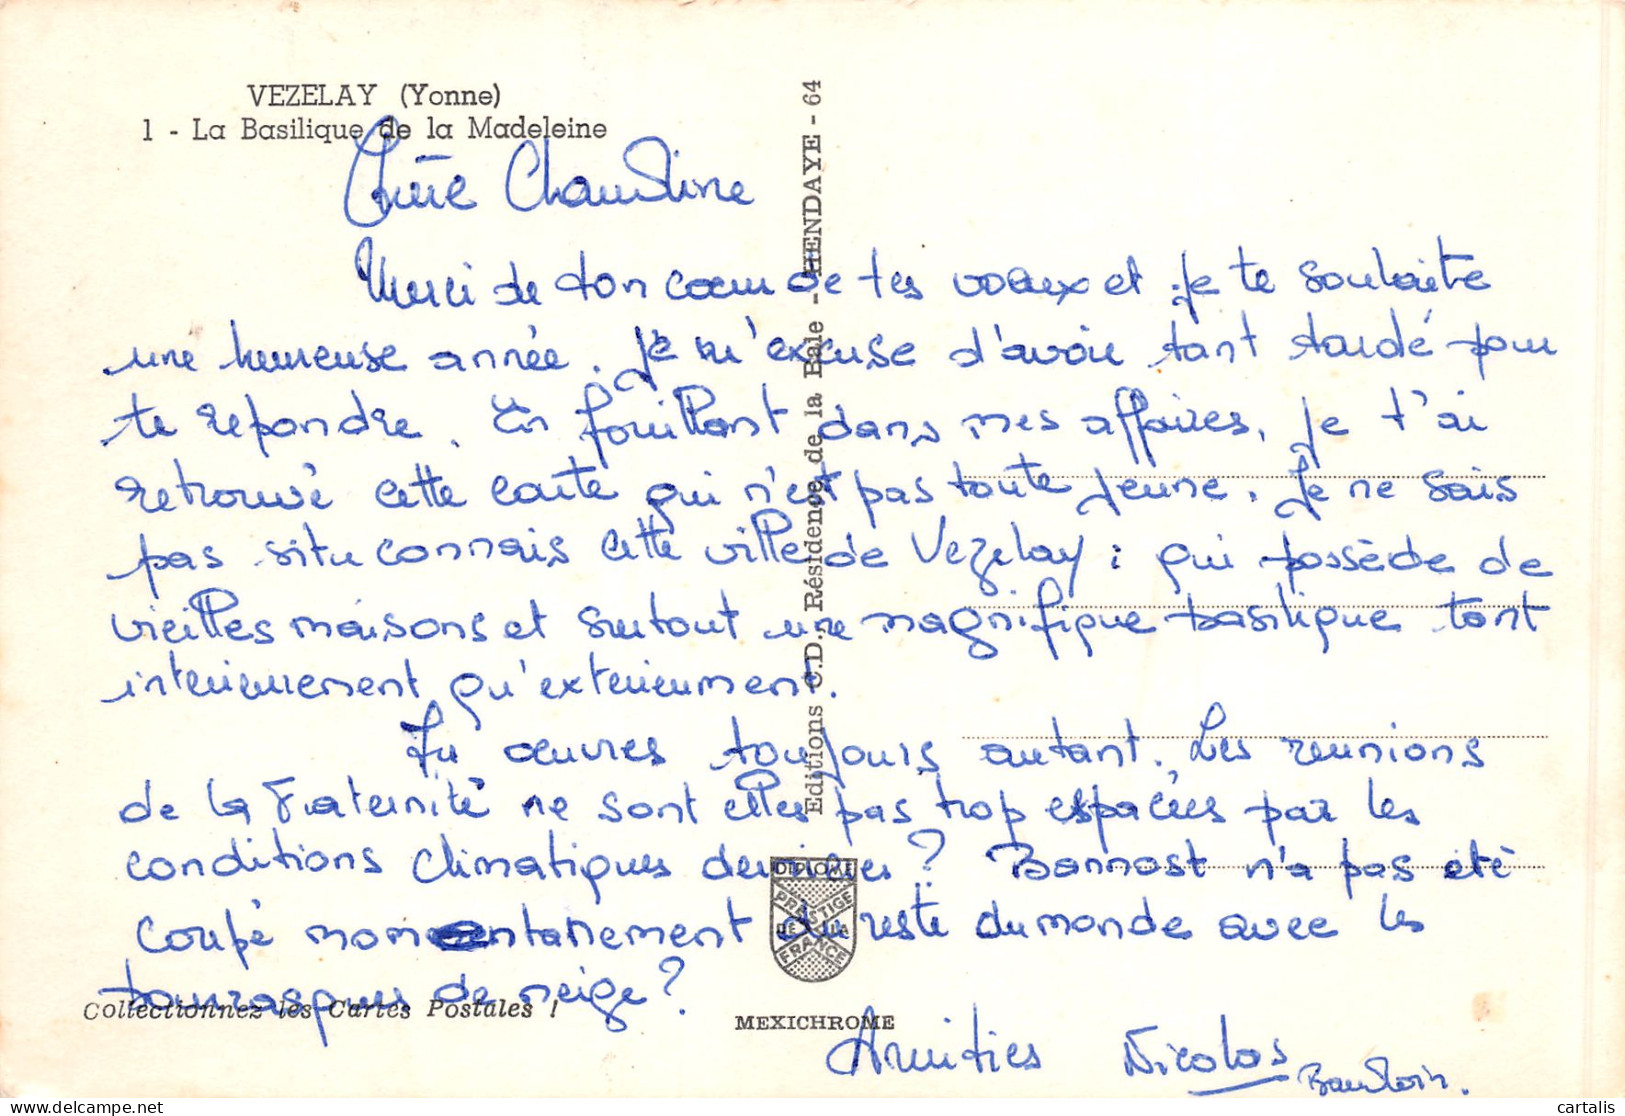 VEZELAY (Yonne)
1 - La Basilique de la Madeleine
Chère Claudine
Merci de ton cœur de tes voeux et je te souhaite
une heureuse année. Je m'excuse d'avoir tant tardé pour
te repondre. En fouillant dans mes affaires, je t'ai
retrouvé cette carte qui n'est pas toute jeune. Je ne sais
pas si tu connais cette ville de Vezelay : qui possède de
vieilles maisons et surtout une magnifique basilique tant
interieurement qu'exterieurement.
Tu œuvres toujours autant. Les reunions
de la Fraternité ne sont elles pas trop espacées par les
conditions climatiques dernières ? Bannost n'a pas été
coupé momentanement du reste du monde avec les
bourrasques de neige ?
Amitiés Nicolas
Baudoin.
Editions C.D. Résidence de la Baie - HENDAYE - 64
DIPLOME
PRESTIGE
DE LA
FRANCE
Collectionnez les Cartes Postales !
MEXICHROME
cartalis